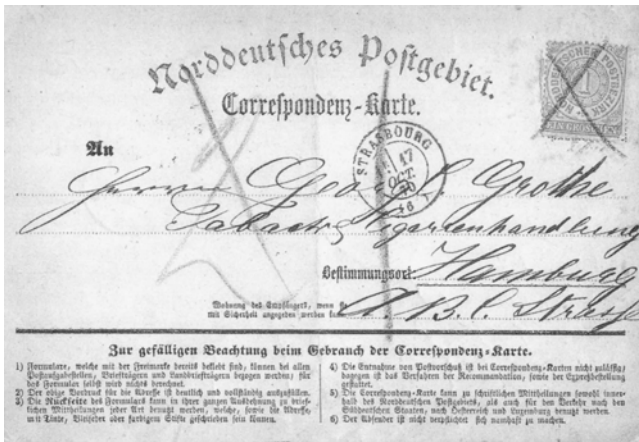 Norddeutsches Postgebiet.
Correspondenz-Karte.
NORDDEUTSCHER POSTBEZIRK
1
EIN GROSCHEN
STRASBOURG
17
OCT.
70
An
Herrn Geo. L. Grothe
Taback & Cigarrenhandlung
Bestimmungsort: Hamburg
A. B. C. Strasse
Wohnung des Empfängers, wenn sie
mit Sicherheit angegeben werden kann
Zur gefälligen Beachtung beim Gebrauch der Correspondenz-Karte.
1) Formulare, welche mit der Freimarke bereits beklebt sind, können bei allen
Postaufgabestellen, Briefträgern und Landbriefträgern bezogen werden; für
das Formular selbst wird nichts berechnet.
2) Der obige Vordruck für die Adresse ist deutlich und vollständig auszufüllen.
3) Die Rückseite des Formulars kann in ihrer ganzen Ausdehnung zu brief-
lichen Mittheilungen jeder Art benutzt werden, welche, sowie die Adresse,
mit Tinte, Bleifeder oder farbigem Stifte geschrieben sein können.
4) Die Entnahme von Postvorschuß ist bei Correspondenz-Karten nicht zulässig;
dagegen ist das Verfahren der Recommandation, sowie der Expreßbestellung
gestattet.
5) Die Correspondenz-Karte kann zu schriftliche Mittheilungen sowohl inner-
halb des Norddeutschen Postgebiets, als auch für den Verkehr nach den
Süddeutschen Staaten, nach Oesterreich und Luxemburg benutzt werden.
6) Der Absender ist nicht verpflichtet sich namhaft zu machen.